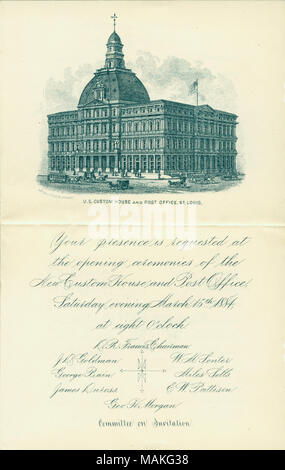 U.S. CUSTOM HOUSE AND POST OFFICE, ST. LOUIS.
Your presence is requested at
the opening ceremonies of the
New Custom House and Post Office,
Saturday evening March 15th 1884,
at eight O'clock
D. R. Francis, Chairman
J. L. D. Goldman W. A. Senter
George Bain Miles Sells
James E. W. Pattison
Geo. H. Morgan
Committee on Invitation
alamy
Image ID: MAKG38
www.alamy.com